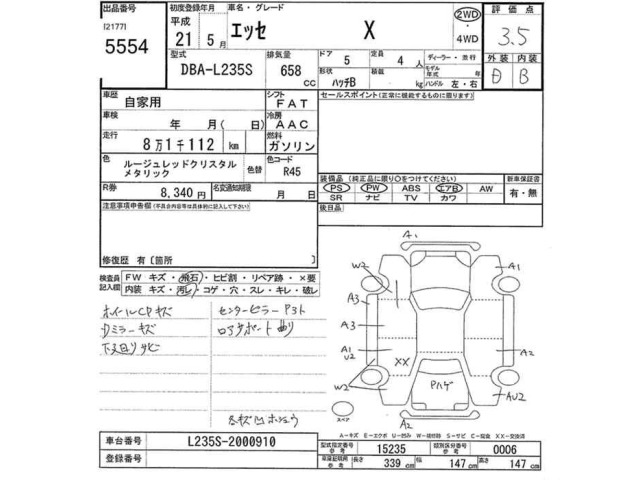 出品番号 初度登録年月 車名・グレード 評価点
[2177]
5554
平成
21 年 5 月 エッセ X 2WD・4WD 3.5
型式 排気量 ドア 5 定員 4 人 ディーラー・並行 外装 内装
DBA-L235S 658 CC 形状 ハッチB 積載 kg モデル年式 年 ハンドル 左・右 B
車歴 自家用 シフト FAT セールスポイント(正常に機能するものに限る)
車検 年 月(日) 冷房 AAC
走行 8万1千112 km 燃料 ガソリン
色 ルージュレッドクリスタルメタリック 色替 色コード R45
装備品(純正品に限り○をつけてください) 新車保証書
PS PW ABS エアB AW 有・無
SR ナビ TV カワ
R券 8,340 円 名変通知期限 月 日
後日品
注意事項申告欄(不具合内容は具体的に記入して下さい)
修復歴 有〔箇所 〕
検査員記入欄 FW キズ・飛石・ヒビ割・リペア跡・×要
内装 キズ・汚レ・コゲ・穴・スレ・キレ・破レ
ホイールCPキズ センターピラーPヨト
Dミラーキズ ロアサポート曲り
下廻りサビ
各キズ凹ホショウ
A1
W2 A1
A3
A3
A1 U2 A2
XX
W2 Pハゲ AU2
スペア A2
A-キズ E-エクボ U-凹み W-補修跡 S-サビ C-腐食 XX-交換済
車台番号 L235S-2000910 型式指定番号 参考 15235 類別区分番号 参考 0006
登録番号 車庫証明用 参考 長さ 339 cm 幅 147 cm 高さ 147 cm